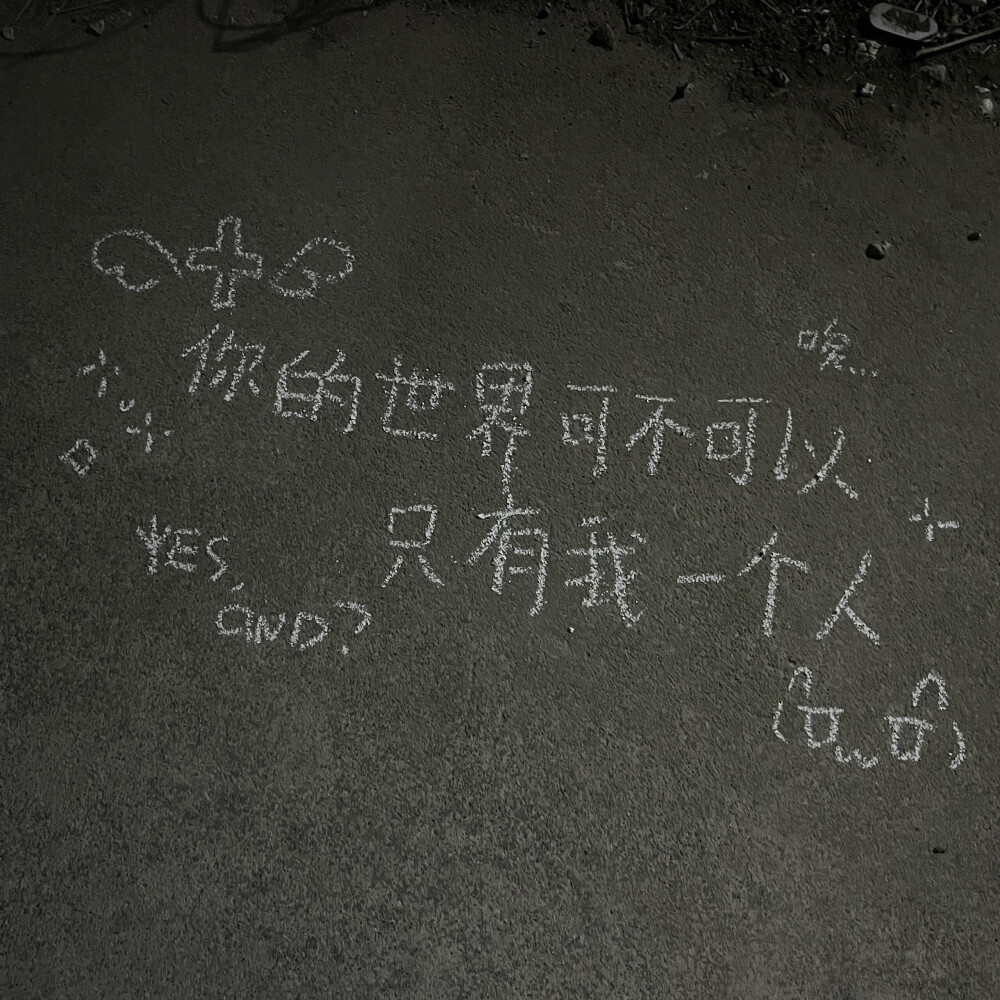 你的世界可不可以
只有我一个人
YES,
AND?